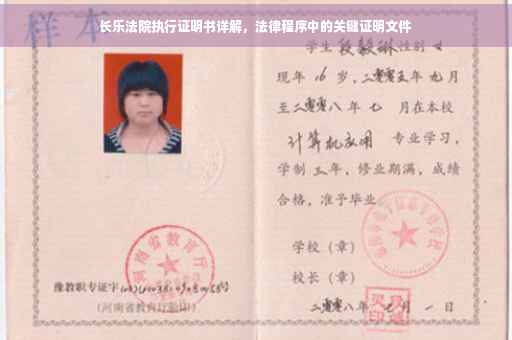 长乐法院执行证明书详解，法律程序中的关键证明文件
样本
学生段毅琳性别女
现年16岁，二零零五年九月
至二零零八年七月在本校
计算机应用 专业学习，
学制三年，修业期满，成绩
合格，准予毕业。
学校（章）
校长（章）
二零零八年七月一日
河南省教育厅
豫教职专证字
（河南省教育厅验印）